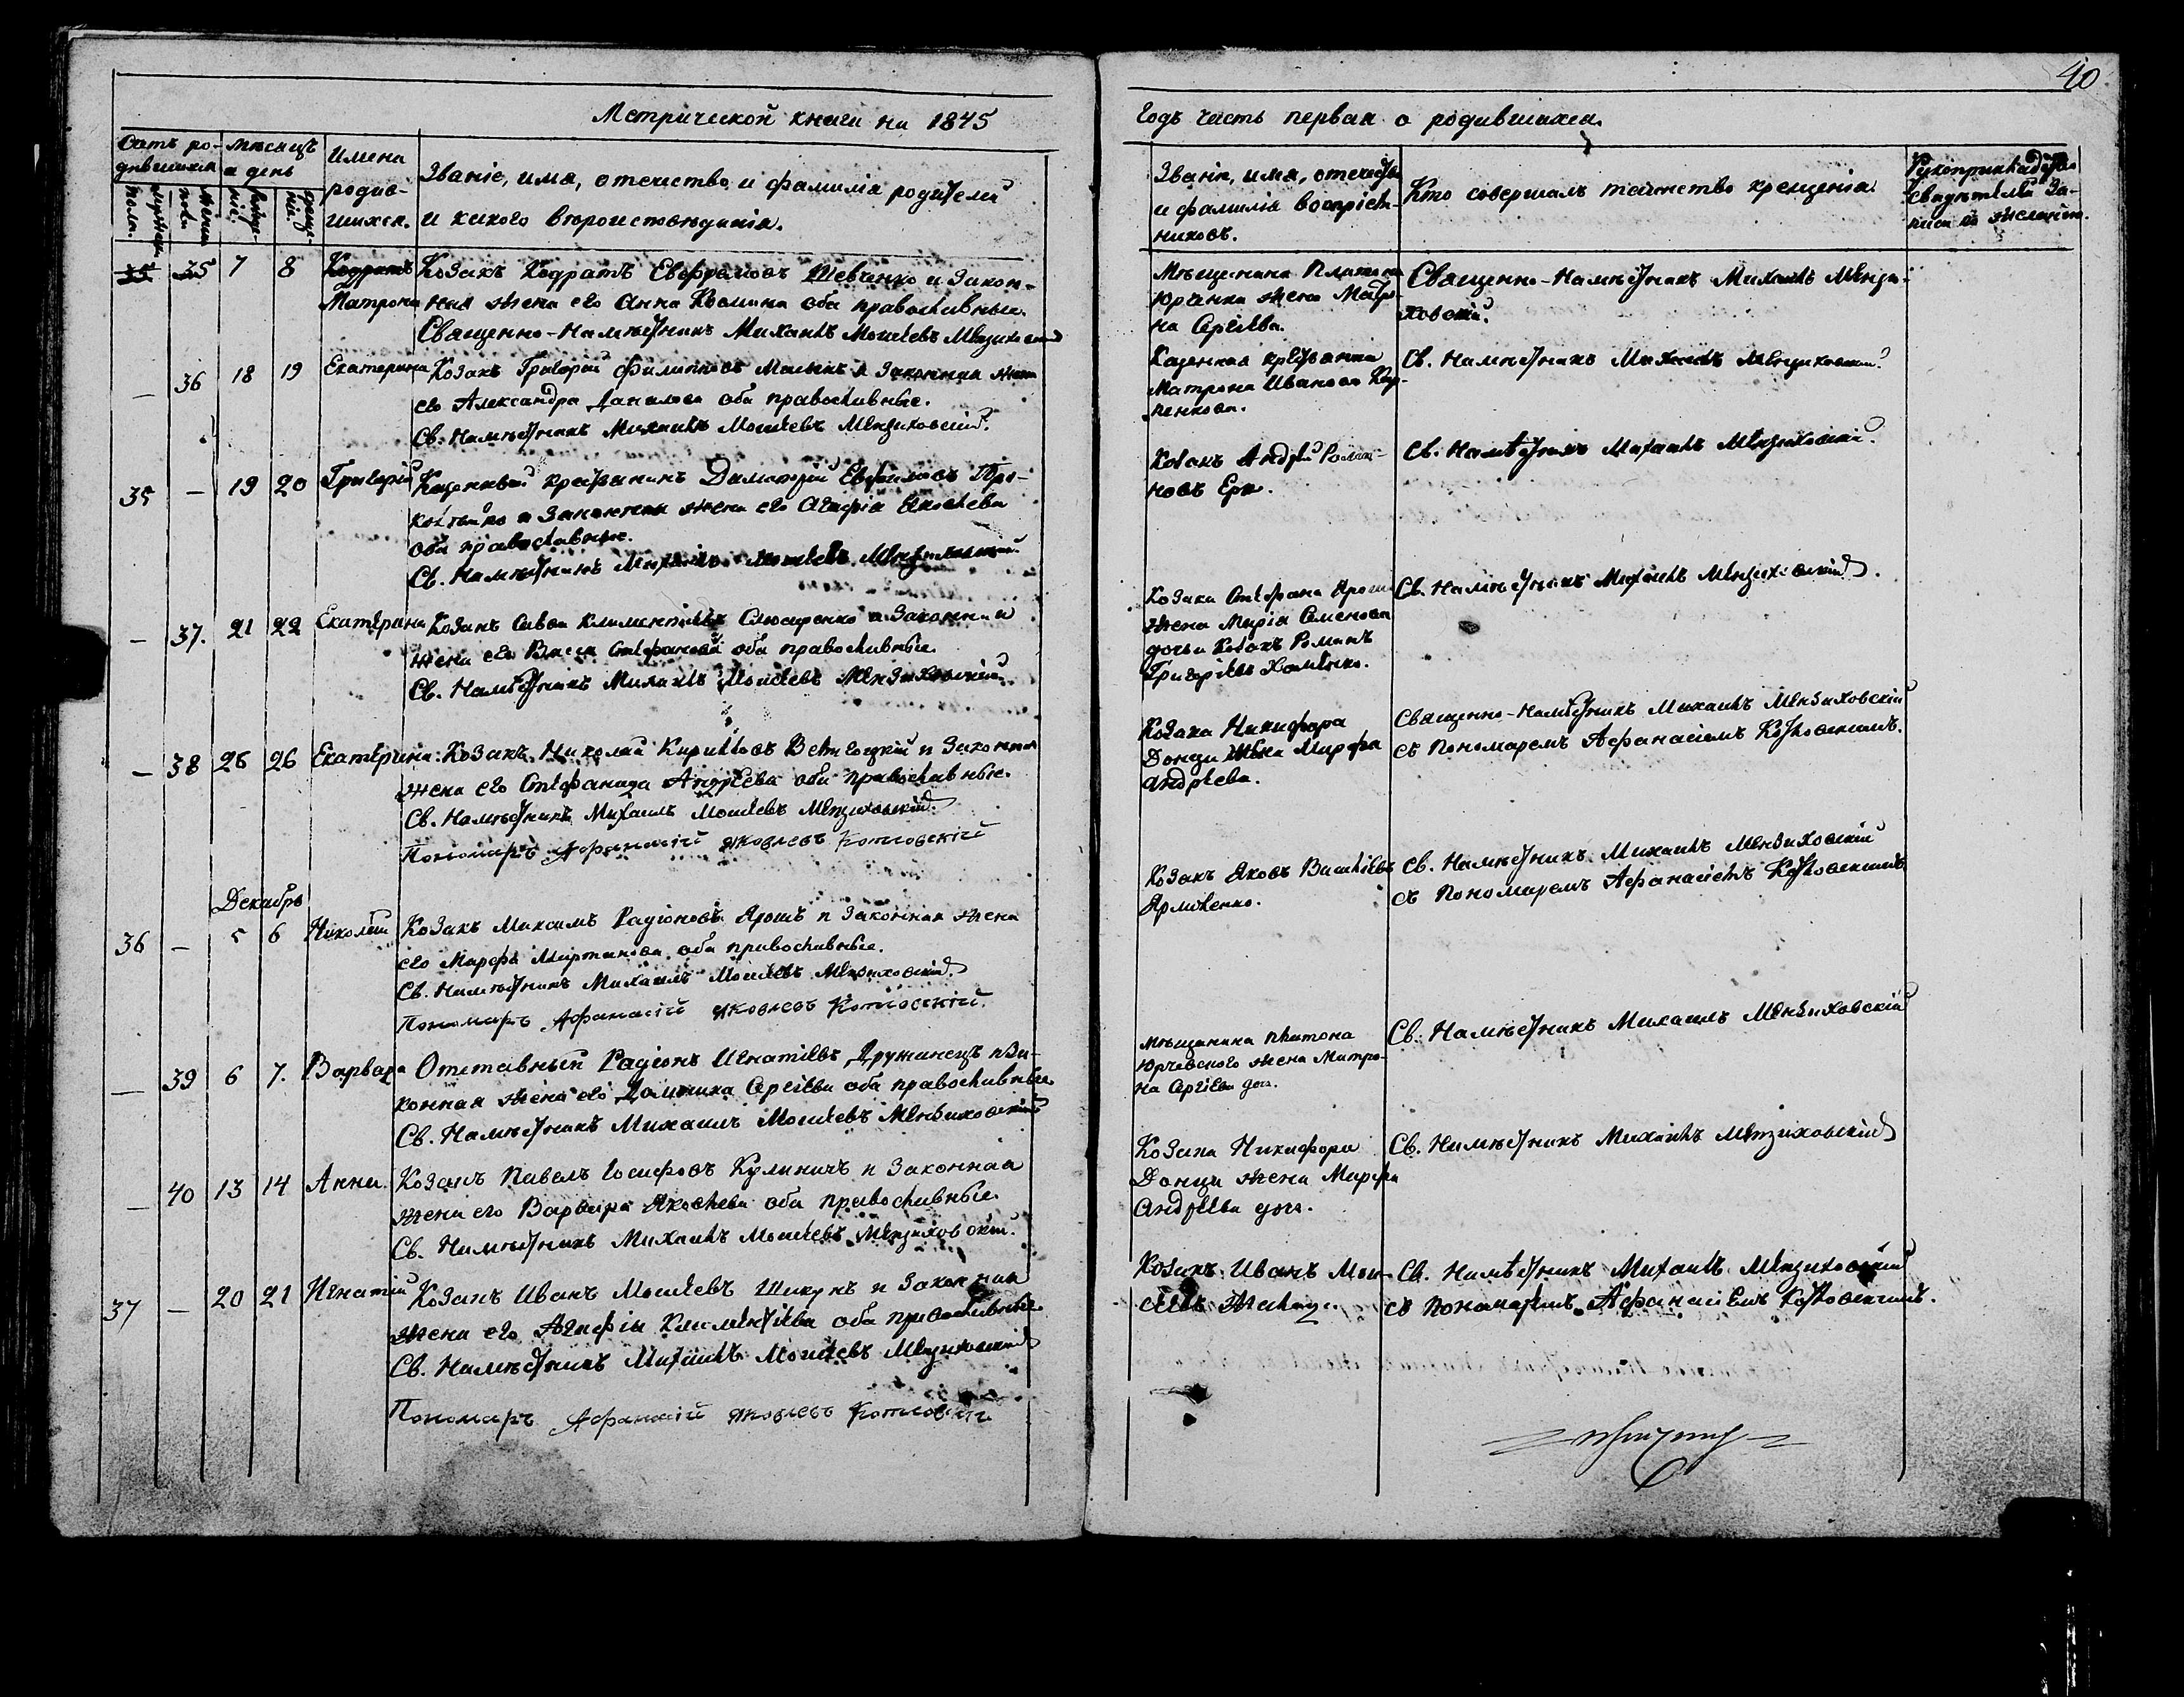 40
Метрической книги на 1845
годъ часть первая о родившихся.
Счетъ ро-
дившихся
Мѣсяцъ
и день
Имена
родив-
шихся.
Званіе, имя, отчество и фамилія родителей
и какого вѣроисповѣданія.
Званіе, имя, отечество
и фамилія воспріем-
никовъ.
Кто совершалъ таинство крещенія
Рукоприкладство
свидѣтелей за-
писи по желанію.
35 35 7 8 Кодратъ Козакъ Кодратъ Евфремовъ Шевченко и закон-
Матрона ная жена его Анна Квомина оба православные.
Священно-Намѣстникъ Михаилъ Моисеевъ Мензиховский
Мещанина Платона
Юрченка жена Матро-
на Сергіева.
Священно-Намѣстникъ Михаилъ Мензи-
ховскій.
— 36 18 19 Екатерина Козакъ Григорій Филиповъ и законная жена
его Александра Данилова оба православные.
Св. Намѣстникъ Михаилъ Моисеевъ Мензиховскій.
Казенная крестьянка
Матрона Иванова Кар-
пенкова.
Св. Намѣстникъ Михаилъ Мензиховскій.
35 — 19 20 Григорій Казенный крестьянинъ Димитрій Евфимовъ Про-
и законная жена его Агафія Яковлева
оба православные.
Св. Намѣстникъ Михаилъ Моисеевъ Мензиховскій
Козакъ Андрей Рома-
новъ
Св. Намѣстникъ Михаилъ Мензиховскій.
— 37. 21 22 Екатерина Козакъ Савва Климентіевъ Слюсаренко и законная
жена его Васса Стефанова оба православные.
Св. Намѣстникъ Михаилъ Моисеевъ Мензиховскій.
Козака Стефана
жена Марія Семенова
дочь и Козакъ Романъ
Григоріевъ Хоменко.
Св. Намѣстникъ Михаилъ Мензиховскій.
— 38 26 26 Екатерина Козакъ Николай Кириловъ и законная
жена его Стефанида Андреева оба православные.
Св. Намѣстникъ Михаилъ Моисеевъ Мензиховскій
Пономарь Афанасій Яковлевъ Котловскій
Козака Никифора
Донца жена Марфа
Андреева.
Священно-Намѣстникъ Михаилъ Мензиховскій
съ Пономаремъ Афанасіемъ Котловскимъ.
Декабрь
36 — 5 6 Николай Козакъ Максимъ Радіоновъ Ярошъ и законная жена
его Марфа Мартинова оба православные.
Св. Намѣстникъ Михаилъ Моисеевъ Мензиховскій
Пономарь Афанасій Яковлевъ Котловскій
Козакъ Яковъ Васильевъ
Св. Намѣстникъ Михаилъ Мензиховскій
съ Пономаремъ Афанасіемъ Котловскимъ
— 39 6 7. Варвара Отставный Радіонъ Игнатіевъ Дружинецъ и за-
конная жена его Домника Сергіева оба православные.
Св. Намѣстникъ Михаилъ Моисеевъ Мензиховскій
Мѣщанина Платона
Юрчевского жена Матро-
на Сергіева доч.
Св. Намѣстникъ Михаилъ Мензиховскій
— 40 13 14 Анна Козакъ Павелъ Іосифовъ Кулиничъ и законная
жена его Варвара Яковлева оба православные.
Св. Намѣстникъ Михаилъ Моисеевъ Мензиховскій.
Козака Никифора
Донца жена Марфа
Андреева доч.
Св. Намѣстникъ Михаилъ Мензиховскій
37 — 20 21 Игнатій Козакъ Иванъ Моисеевъ Шикунъ и законная
жена его Агафія Климентіева оба православные.
Св. Намѣстникъ Михаилъ Моисеевъ Мензиховскій
Пономарь Афанасій Яковлевъ Котловскій
Козакъ Иванъ Мои-
сеевъ
Св. Намѣстникъ Михаилъ Мензиховскій
съ Пономаремъ Афанасіемъ Котловскимъ.